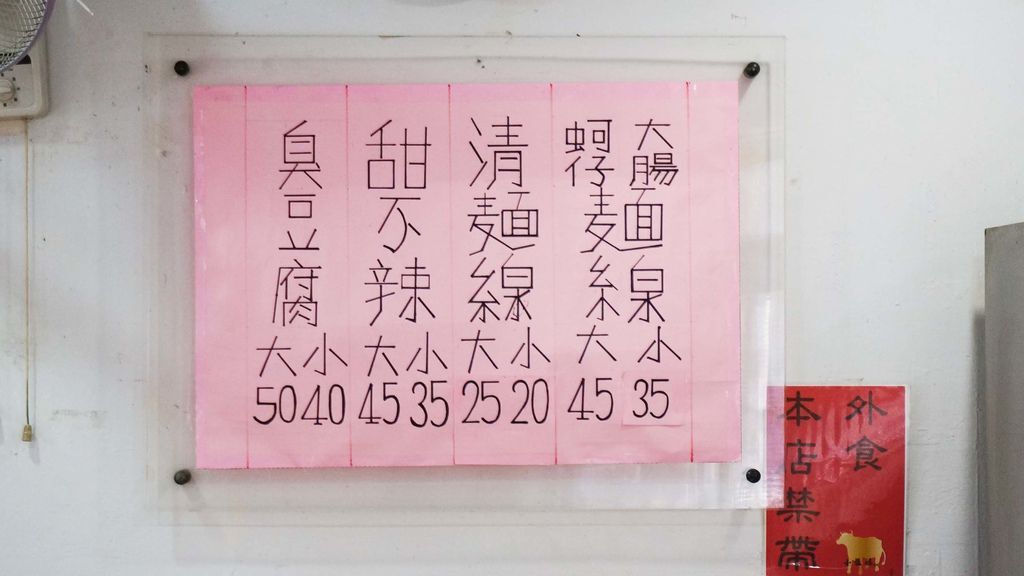 大腸
蚵仔
麵線
大 小
45 35
清麵線
大 小
25 20
甜不辣
大 小
45 35
臭豆腐
大 小
50 40
本店禁帶
外食